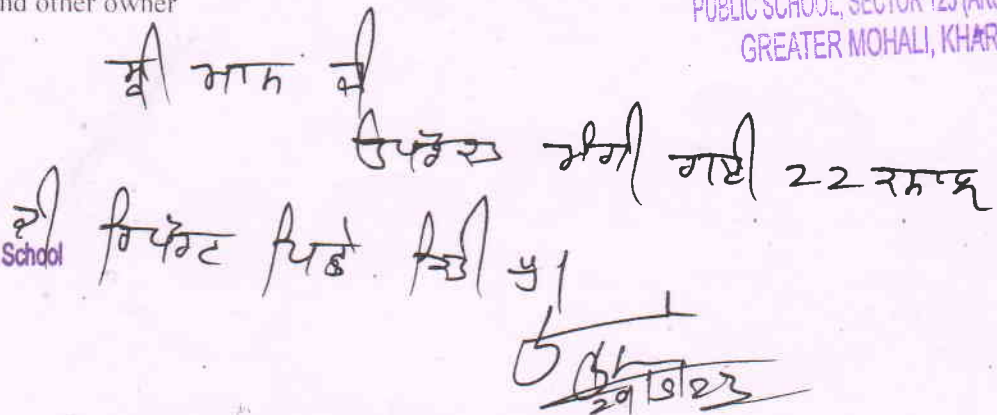 nd other owner
PUBLIC SCHOOL, SECTOR 123
GREATER MOHALI, KHAR
ਸ੍ਰੀ ਮਾਨ ਜੀ
ਉਪਰੋਕਤ ਮੰਗੀ ਗਈ 22
ਦੀ ਰਿਪੋਰਟ ਪਿਛੇ
School